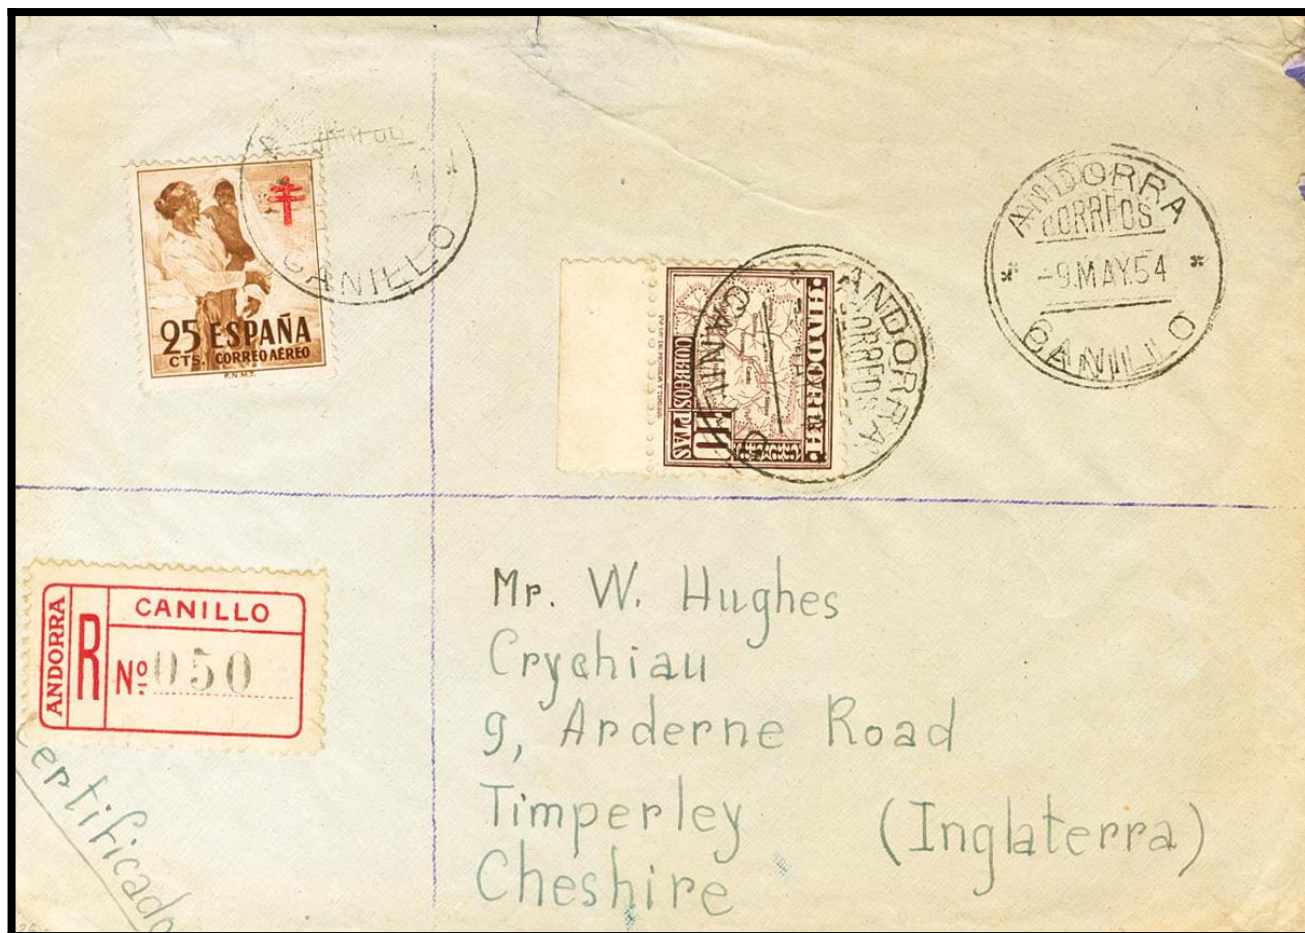 CANILLO
25 ESPAÑA
CTS. CORREO AÉREO
F.N.M.T.
ANDORRA
CORREOS
CANILLO
CORREOS 10 PTAS
ANDORRA
CORREOS
-9.MAY.54
CANILLO
ANDORRA
R
CANILLO
Nº 050
Certificado
Mr. W. Hughes
Crychiau
9, Arderne Road
Timperley (Inglaterra)
Cheshire